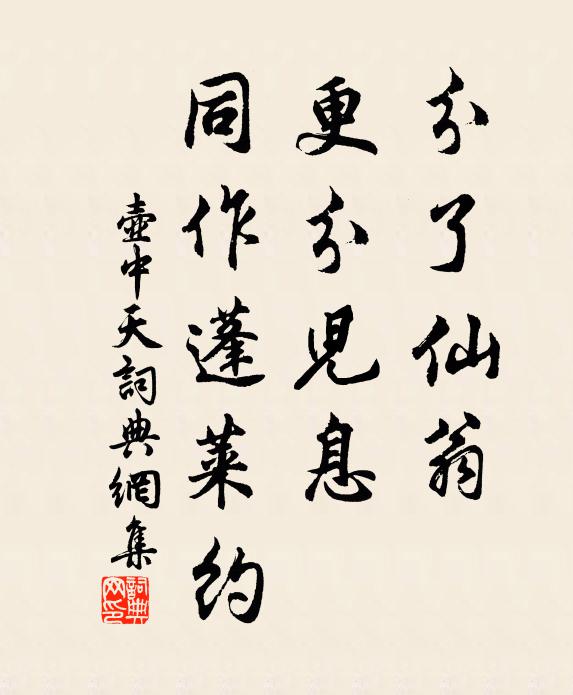 分了仙翁
更分兒息
同作蓬萊約
壺中天詞典網集
詞典
网印